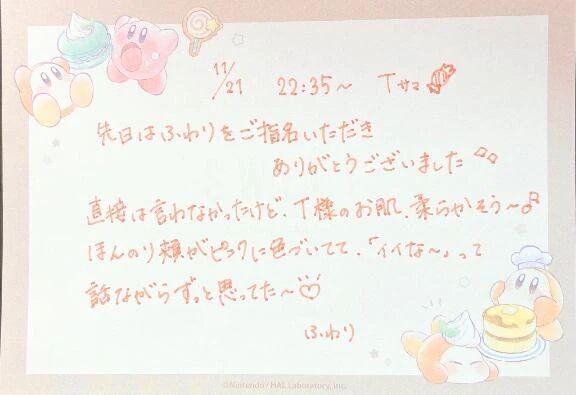 11/21 22:35～ Tサマ
先日はふわりをご指名いただき
ありがとうございました♪
直接は言わなかったけど、T様のお肌、柔らかそう～♪
ほんのり頬がピンクに色づいてて、「イイな～」って
話ながらずっと思ってた～♡
ふわり
©Nintendo / HAL Laboratory, Inc.